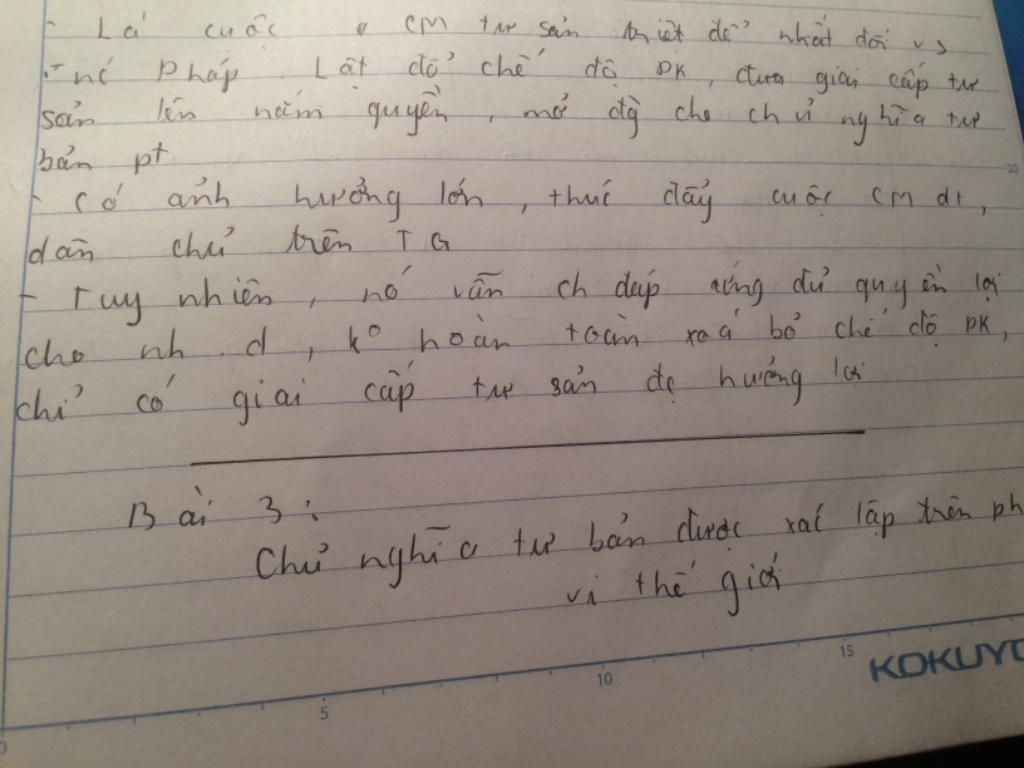 - Là cuộc CM tư sản triệt để nhất đối vs
nc Pháp. Lật đổ chế độ PK, đưa giai cấp tư
sản lên nắm quyền, mở đg cho chủ nghĩa tư
bản pt
- Có ảnh hưởng lớn, thúc đẩy cuộc CM dt,
dân chủ trên TG
- Tuy nhiên, nó vẫn ch đáp ứng đủ quyền lợi
cho nh.d, ko hoàn toàn xoá bỏ chế độ PK,
chỉ có giai cấp tư sản đc hưởng lợi
Bài 3:
Chủ nghĩa tư bản được xác lập trên ph
vi thế giới
0 5 10 15 20
KOKUYO